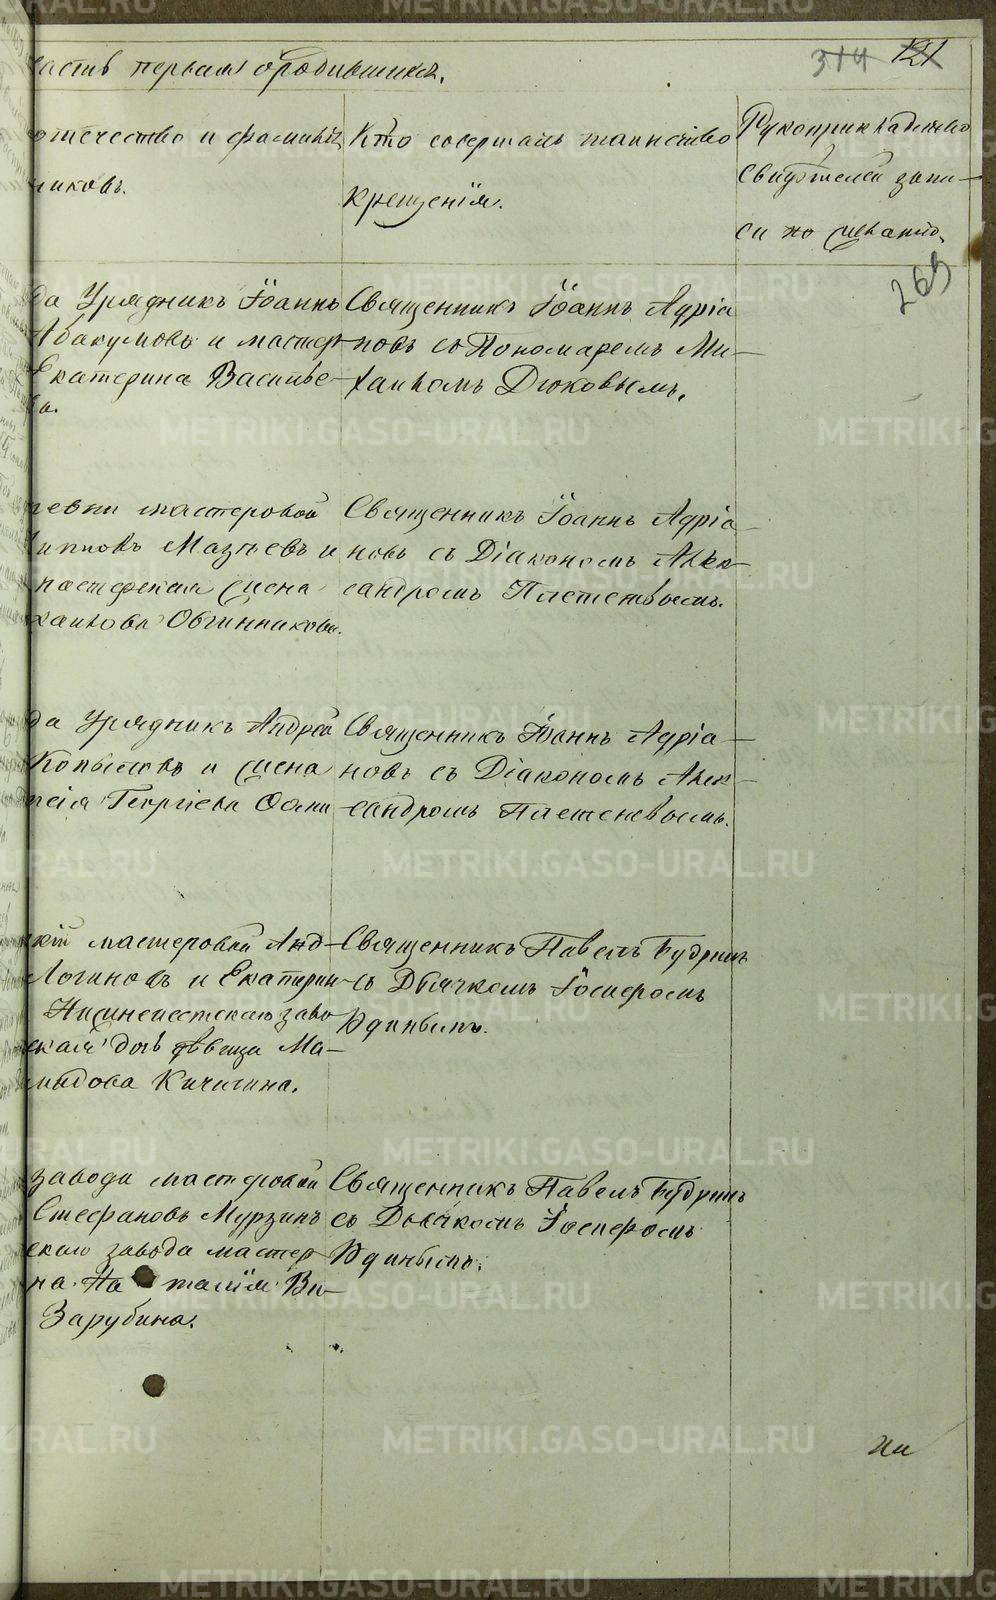 часть первая о родившихся.
314 121
отчество и фамилія
никовъ.
Кто совершалъ таинство
крещенія.
Рукоприкладство
свидѣтелей запи-
си по желанію.
269
да Урядникъ Іоаннъ
Абакумовъ и мастер-
Екатерина Василье-
ва.
Священникъ Іоаннъ Адріа
новъ съ Пономаремъ Ми-
хаиломъ Дюковымъ.
мастеровой
Мазѣевъ и
жена
Овчинникова.
Священникъ Іоаннъ Адріа-
новъ съ Діакономъ Алек-
сандромъ Плетеневымъ.
да Урядникъ Андрей
Копыловъ и жена
Георгіева
Священникъ Іоаннъ Адріа-
новъ съ Діакономъ Алек-
сандромъ Плетеневымъ.
кій мастеровой Анд-
Логиновъ и Екатерин-
заво
ская дочь дѣвица Ма-
Кичигина.
Священникъ Павелъ Будринъ
съ Дьячкомъ Іосифомъ
Юдинымъ.
завода мастеровой
Стефановъ Мурзинъ
скаго завода мастер-
на На талія Ва-
Зарубина.
Священникъ Павелъ Будринъ
съ Дьячкомъ Іосифомъ
Юдинымъ.
METRIKI.GASO-URAL.RU